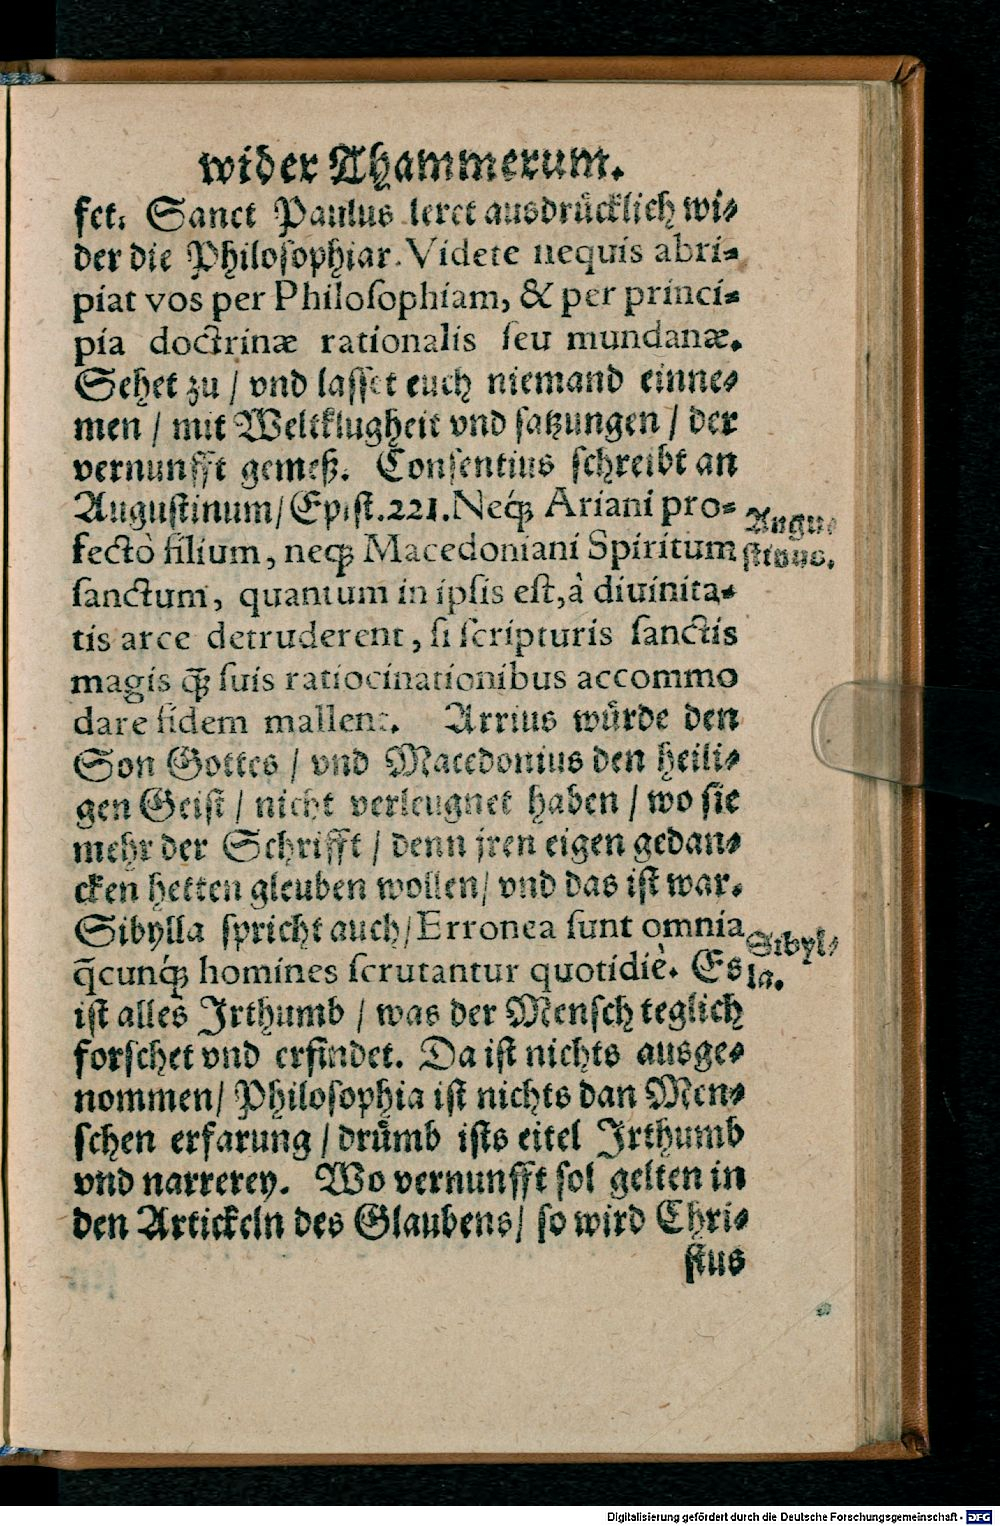 wider Thammerum.
fet. Sanct Paulus leret ausdrücklich wi-
der die Philosophiar. Videte nequis abri-
piat vos per Philosophiam, & per princi-
pia doctrinæ rationalis seu mundanæ.
Sehet zu / vnd lasset euch niemand einne-
men / mit Weltklugheit vnd satzungen / der
vernunfft gemeß. Consentius schreibt an
Augustinum / Epist. 221. Neq́; Ariani pro-
Augu-
fectò filium, neq; Macedoniani Spiritum
stinus.
sanctum, quantum in ipsis est, à diuinita-
tis arce detruderent, si scripturis sanctis
magis q̃; suis ratiocinationibus accommo
dare fidem mallent. Arrius würde den
Son Gottes / vnd Macedonius den heili-
gen Geist / nicht verleugnet haben / wo sie
mehr der Schrifft / denn jren eigen gedan-
cken hetten gleuben wollen / vnd das ist war.
Sibylla spricht auch / Erronea sunt omnia
Sibyl-
q̃cunq́; homines scrutantur quotidiè. Es
la.
ist alles Jrthumb / was der Mensch teglich
forschet vnd erfindet. Da ist nichts ausge-
nommen / Philosophia ist nichts dan Men-
schen erfarung / drümb ists eitel Jrthumb
vnd narrerey. Wo vernunfft sol gelten in
den Artickeln des Glaubens / so wird Chri-
stus
Digitalisierung gefördert durch die Deutsche Forschungsgemeinschaft - DFG